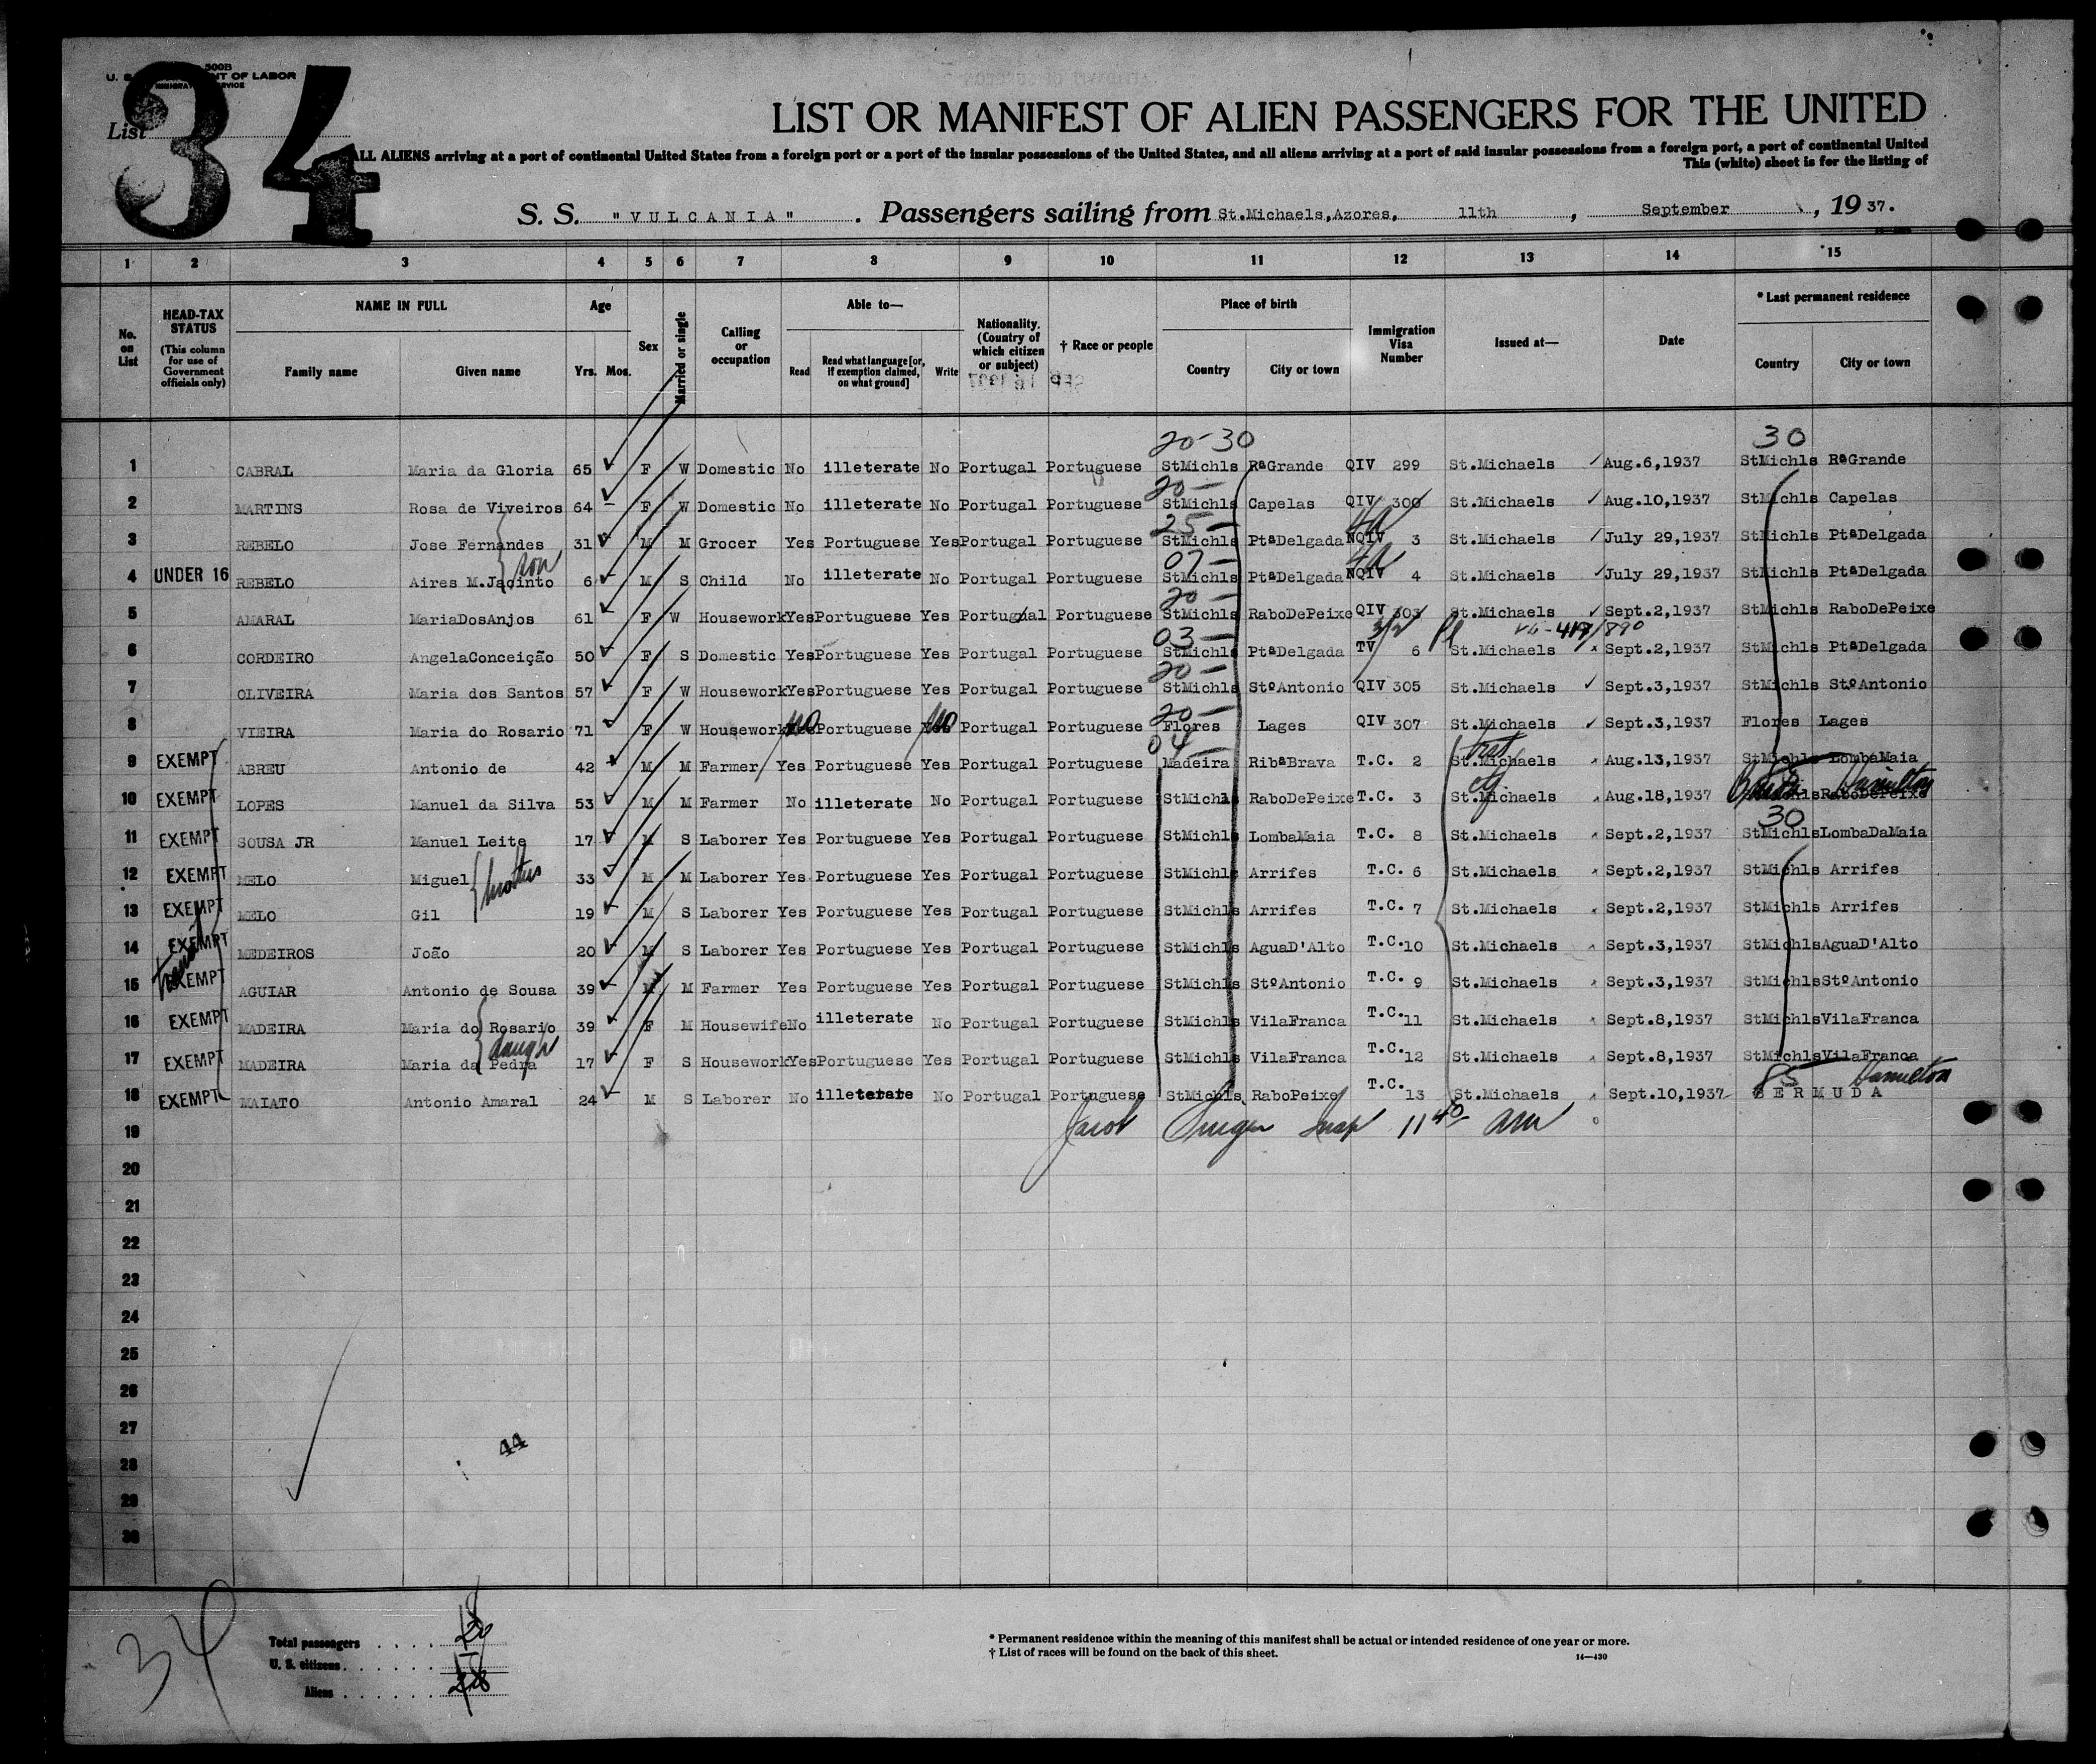 500B
U. S. DEPARTMENT OF LABOR
IMMIGRATION SERVICE
List 34
LIST OR MANIFEST OF ALIEN PASSENGERS FOR THE UNITED
ALL ALIENS arriving at a port of continental United States from a foreign port or a port of the insular possessions of the United States, and all aliens arriving at a port of said insular possessions from a foreign port, a port of continental United
This (white) sheet is for the listing of
S. S. "VULCANIA". Passengers sailing from St.Michaels,Azores, 11th, September, 1937.
1 2 3 4 5 6 7 8 9 10 11 12 13 14 15
No. on List HEAD-TAX STATUS (This column for use of Government officials only) NAME IN FULL Family name Given name Age Yrs. Mos. Sex Married or single Calling or occupation Able to— Read Read what language [or, if exemption claimed, on what ground] Write Nationality. (Country of which citizen or subject) † Race or people Place of birth Country City or town Immigration Visa Number Issued at— Date * Last permanent residence Country City or town
20-30 30
1 CABRAL Maria da Gloria 65 F W Domestic No illeterate No Portugal Portuguese StMichls RªGrande QIV 299 St.Michaels Aug.6,1937 StMichls RªGrande
20-
2 MARTINS Rosa de Viveiros 64 F W Domestic No illeterate No Portugal Portuguese StMichls Capelas QIV 300 St.Michaels Aug.10,1937 StMichls Capelas
25-
3 REBELO Jose Fernandes 31 M M Grocer Yes Portuguese Yes Portugal Portuguese StMichls PtªDelgada NQIV 3 St.Michaels July 29,1937 StMichls PtªDelgada
son 07-
4 UNDER 16 REBELO Aires M.Jacinto 6 M S Child No illeterate No Portugal Portuguese StMichls PtªDelgada NQIV 4 St.Michaels July 29,1937 StMichls PtªDelgada
20-
5 AMARAL MariaDosAnjos 61 F W Housework Yes Portuguese Yes Portugal Portuguese StMichls RaboDePeixe QIV 303 St.Michaels Sept.2,1937 StMichls RaboDePeixe
03- 3/2
6 CORDEIRO AngelaConceição 50 F S Domestic Yes Portuguese Yes Portugal Portuguese StMichls PtªDelgada TV 6 St.Michaels Sept.2,1937 StMichls PtªDelgada
20-
7 OLIVEIRA Maria dos Santos 57 F W Housework Yes Portuguese Yes Portugal Portuguese StMichls StºAntonio QIV 305 St.Michaels Sept.3,1937 StMichls StºAntonio
20-
8 VIEIRA Maria do Rosario 71 F W Housework No Portuguese No Portugal Portuguese Flores Lages QIV 307 St.Michaels Sept.3,1937 Flores Lages
04-
9 EXEMPT ABREU Antonio de 42 M M Farmer Yes Portuguese Yes Portugal Portuguese Madeira RibªBrava T.C. 2 St.Michaels Aug.13,1937 StMichls LombaMaia
10 EXEMPT LOPES Manuel da Silva 53 M M Farmer No illeterate No Portugal Portuguese StMichls RaboDePeixe T.C. 3 St.Michaels Aug.18,1937 StMichls RaboDePeixe Hamilton
30
11 EXEMPT SOUSA JR Manuel Leite 17 M S Laborer Yes Portuguese Yes Portugal Portuguese StMichls LombaMaia T.C. 8 St.Michaels Sept.2,1937 StMichls LombaDaMaia
12 EXEMPT MELO Miguel 33 M M Laborer Yes Portuguese Yes Portugal Portuguese StMichls Arrifes T.C. 6 St.Michaels Sept.2,1937 StMichls Arrifes
brothers
13 EXEMPT MELO Gil 19 M S Laborer Yes Portuguese Yes Portugal Portuguese StMichls Arrifes T.C. 7 St.Michaels Sept.2,1937 StMichls Arrifes
14 EXEMPT MEDEIROS João 20 M S Laborer Yes Portuguese Yes Portugal Portuguese StMichls AguaD'Alto T.C. 10 St.Michaels Sept.3,1937 StMichls AguaD'Alto
transit
15 EXEMPT AGUIAR Antonio de Sousa 39 M M Farmer Yes Portuguese Yes Portugal Portuguese StMichls StºAntonio T.C. 9 St.Michaels Sept.3,1937 StMichls StºAntonio
16 EXEMPT MADEIRA Maria do Rosario 39 F M Housewife No illeterate No Portugal Portuguese StMichls VilaFranca T.C. 11 St.Michaels Sept.8,1937 StMichls VilaFranca
daugh
17 EXEMPT MADEIRA Maria da Pedra 17 F S Housework Yes Portuguese Yes Portugal Portuguese StMichls VilaFranca T.C. 12 St.Michaels Sept.8,1937 StMichls VilaFranca
85 Hamilton
18 EXEMPT MAIATO Antonio Amaral 24 M S Laborer No illeterate No Portugal Portuguese StMichls RaboPeixe T.C. 13 St.Michaels Sept.10,1937 BERMUDA
19 Jacob 11 40 am
20
21
22
23
24
25
26
27
28
29
30
44
34
Total passengers
U. S. citizens
Aliens
* Permanent residence within the meaning of this manifest shall be actual or intended residence of one year or more.
† List of races will be found on the back of this sheet.
14—430